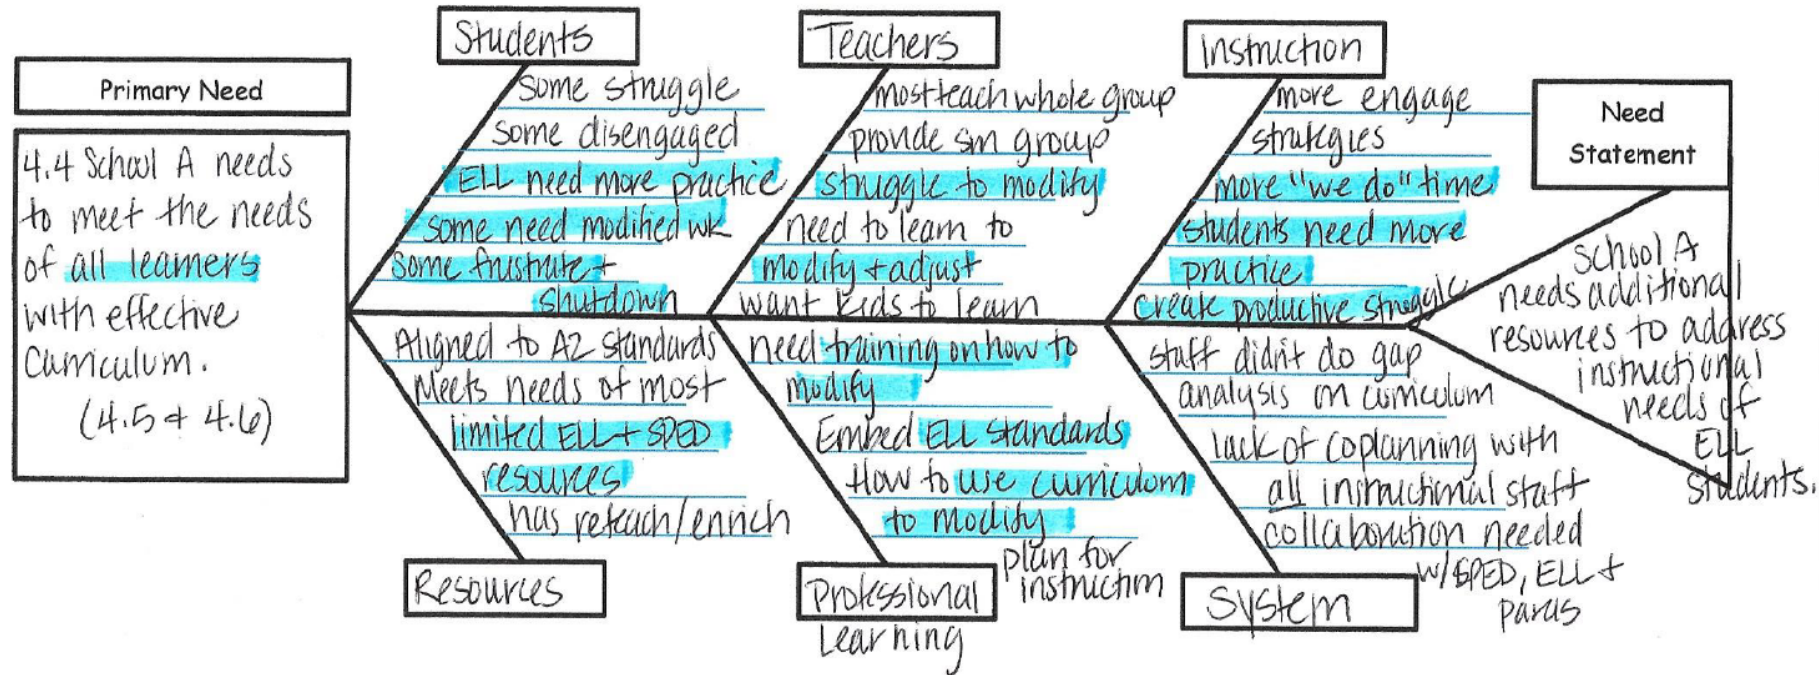 Primary Need
4.4 School A needs
to meet the needs
of all learners
with effective
Curriculum.
(4.5 & 4.6)
Students
some struggle
some disengaged
ELL need more practice
some need modified wk
some frustrate +
shutdown
Teachers
most teach whole group
provide sm group
struggle to modify
need to learn to
modify + adjust
want kids to learn
Instruction
more engage
strategies
more "we do" time
students need more
practice
create productive struggle
Need
Statement
School A
needs additional
resources to address
instructional
needs of
ELL
students.
Aligned to AZ standards
Meets needs of most
limited ELL + SPED
resources
has reteach/enrich
Resources
need training on how to
modify
Embed ELL standards
How to use curriculum
to modify
plan for
instruction
Professional
Learning
staff didn't do gap
analysis on curriculum
lack of coplanning with
all instructional staff
collaboration needed
w/SPED, ELL +
paras
System